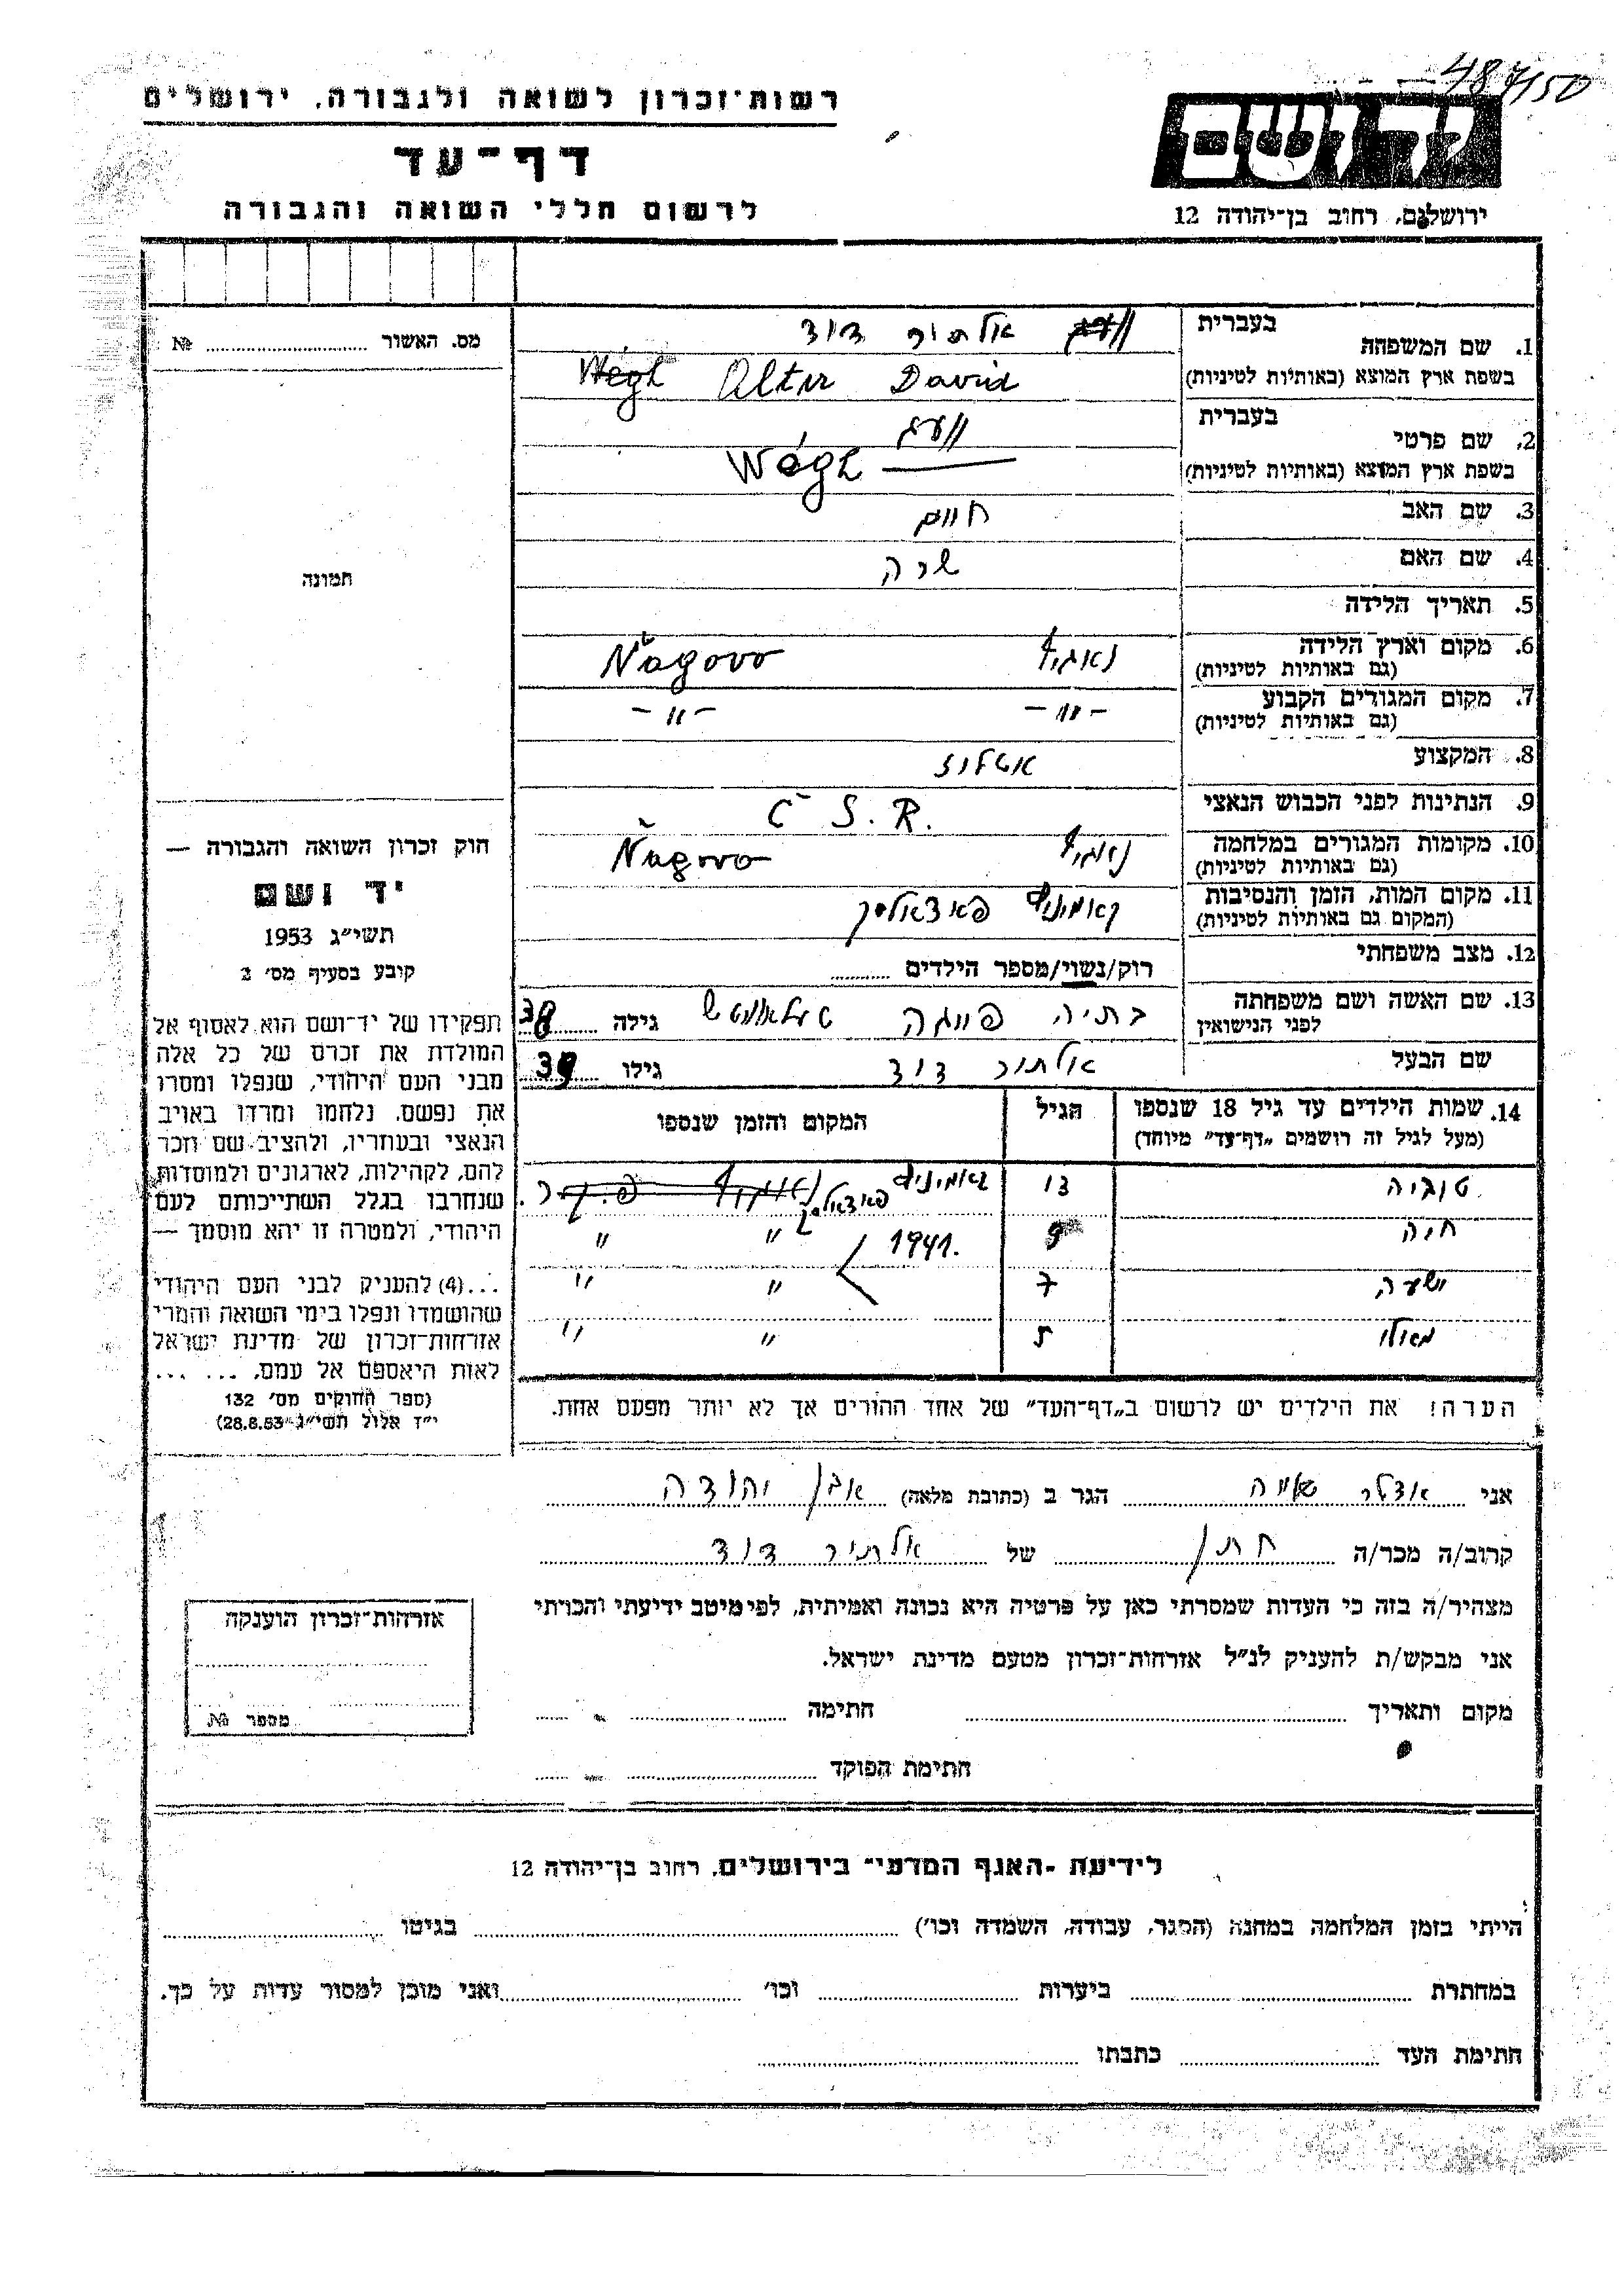 487/50
רשות־זכרון לשואה ולגבורה, ירושלים
יד ושם
דף־עד
לרשום חללי השואה והגבורה
ירושלים, רחוב בן־יהודה 12
מס. האשור № 
1. שם המשפחה
בעברית
אלתור דוד
בשפת ארץ המוצא (באותיות לטיניות)
Wégh Alter David
2. שם פרטי
בעברית
וועג
בשפת ארץ המוצא (באותיות לטיניות)
Wégh
3. שם האב
חיים
4. שם האם
שרה
5. תאריך הלידה
6. מקום וארץ הלידה
(גם באותיות לטיניות)
Nǎgovo
7. מקום המגורים הקבוע
(גם באותיות לטיניות)
-"- -"-
8. המקצוע
9. הנתינות לפני הכבוש הנאצי
C S. R.
10. מקומות המגורים במלחמה
(גם באותיות לטיניות)
Nǎgovo
11. מקום המות, הזמן והנסיבות
(המקום גם באותיות לטיניות)
קאמיניץ פאדאלסק
12. מצב משפחתי
רוק/נשוי/מספר הילדים
13. שם האשה ושם משפחתה
לפני הנישואין
בתיה פייגה גילה 38
שם הבעל
אלתור דוד גילו 39
14. שמות הילדים עד גיל 18 שנספו
(מעל לגיל זה רושמים „דף־עד” מיוחד)
הגיל
המקום והזמן שנספו
טוביה 13 קאמיניץ פאדאלסק
חיה 9 " "
1941.
ישעיה 7 " "
5 " "
הערה! את הילדים יש לרשום ב„דף־העד” של אחד ההורים אך לא יותר מפעם אחת.
תמונה
חוק זכרון השואה והגבורה —
יד ושם
תשי״ג 1953
קובע בסעיף מס׳ 2
תפקידו של יד־ושם הוא לאסוף אל
המולדת את זכרם של כל אלה
מבני העם היהודי, שנפלו ומסרו
את נפשם, נלחמו ומרדו באויב
הנאצי ובעוזריו, ולהציב שם וזכר
להם, לקהילות, לארגונים ולמוסדות
שנחרבו בגלל השתייכותם לעם
היהודי, ולמטרה זו יהא מוסמך —
...(4) להעניק לבני העם היהודי
שהושמדו ונפלו בימי השואה והמרי
אזרחות־זכרון של מדינת ישראל
לאות היאספם אל עמם. ... ...
(ספר החוקים מס׳ 132
י״ז אלול תשי״ג 28.8.53)
אני אדלר הגר ב (כתובת מלאה) אבן יהודה
קרוב/ה מכר/ה חתן של אלתיר דוד
מצהיר/ה בזה כי העדות שמסרתי כאן על פרטיה היא נכונה ואמיתית, לפי מיטב ידיעתי והכרתי
אני מבקש/ת להעניק לנ״ל אזרחות־זכרון מטעם מדינת ישראל.
מקום ותאריך חתימה
חתימת הפוקד
אזרחות־זכרון הוענקה
מספר №
לידיעת -האגף המדעי־ בירושלים, רחוב בן־יהודה 12
הייתי בזמן המלחמה במחנה (הסגר, עבודה, השמדה וכו׳) בגיטו
במחתרת ביערות וכו׳ ואני מוכן למסור עדות על כך.
חתימת העד כתבתו